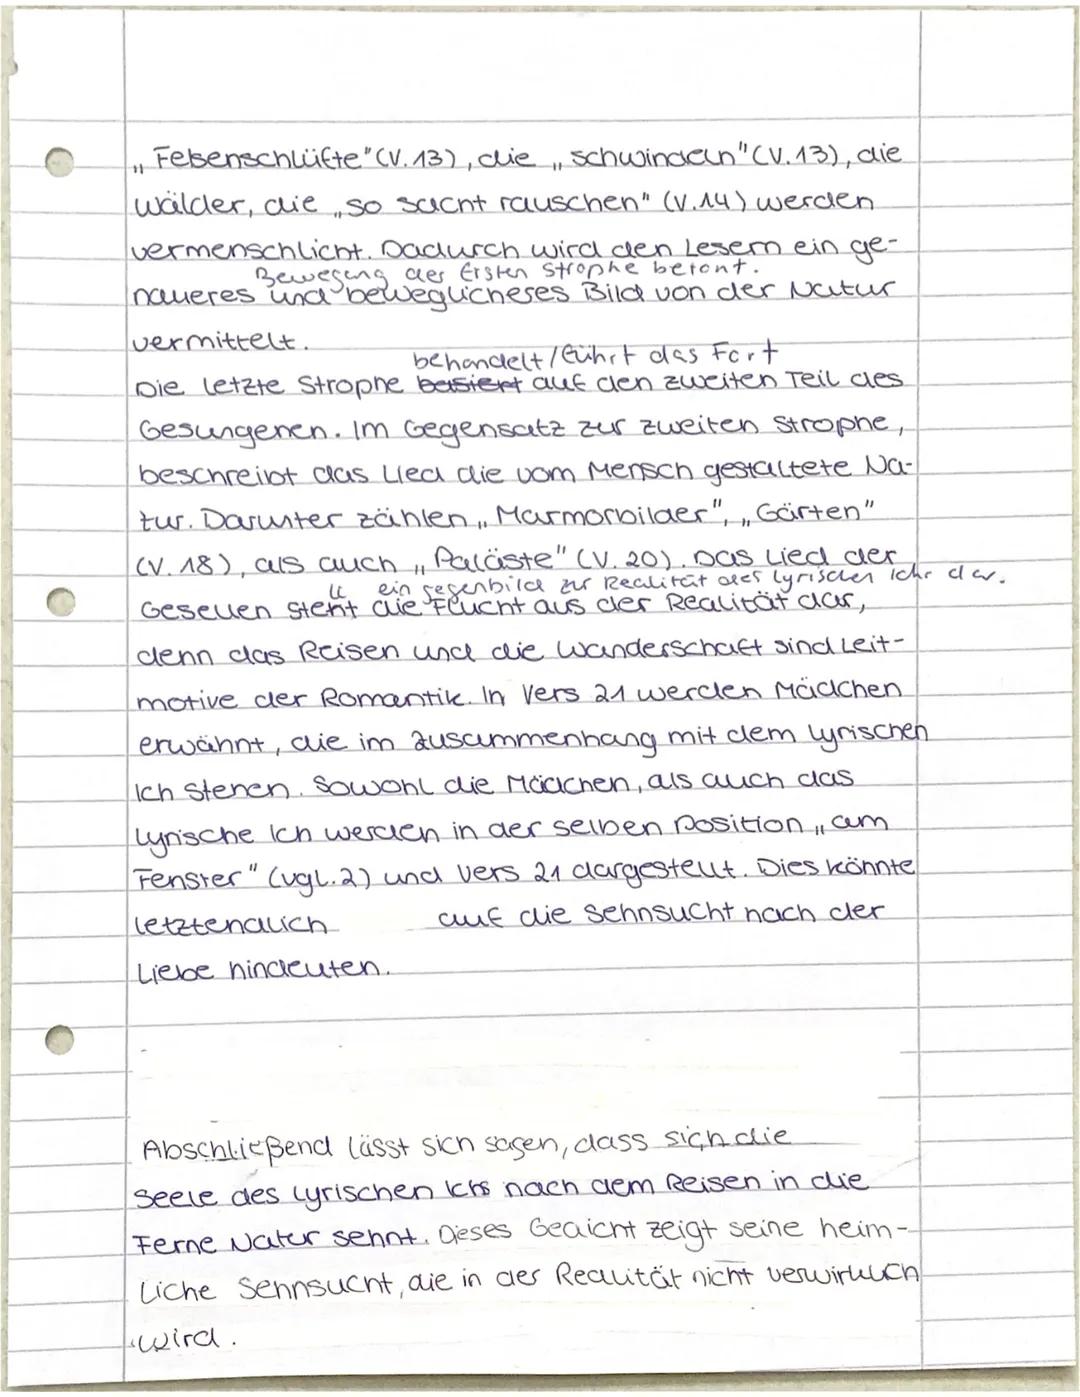 „Felsenschlüfte" (V. 13), die „schwindeln" (V. 13), die
Wälder, die „so sacht rauschen" (V. 14) werden
vermenschlicht. Dadurch wird den Lesern ein ge-
Bewegung der Ersten Strophe betont.
naueres und beweglicheres Bild von der Natur
vermittelt.
behandelt/führt das Fort
Die letzte Strophe basiert auf den zweiten Teil des
Gesungenen. Im Gegensatz zur zweiten Strophe,
beschreibt das Lied die vom Mensch gestaltete Na-
tur. Darunter zählen „Marmorbilder", „Gärten"
(V. 18), als auch „Paläste" (V. 20). Das Lied der
ll ein gegenbild zur Realität des lyrischen Ichs dar.
Gesellen steht die Flucht aus der Realität dar,
denn das Reisen und die Wanderschaft sind Leit-
motive der Romantik. In Vers 21 werden Mädchen
erwähnt, die im Zusammenhang mit dem lyrischen
Ich stehen. Sowohl die Mädchen, als auch das
lyrische Ich werden in der selben Position „am
Fenster" (vgl. 2) und Vers 21 dargestellt. Dies könnte
letztendlich auf die Sehnsucht nach der
Liebe hindeuten.
Abschließend lässt sich sagen, dass sich die
Seele des lyrischen Ichs nach dem Reisen in die
Ferne Natur sehnt. Dieses Gedicht zeigt seine heim-
liche Sehnsucht, die in der Realität nicht verwirklich
wird.